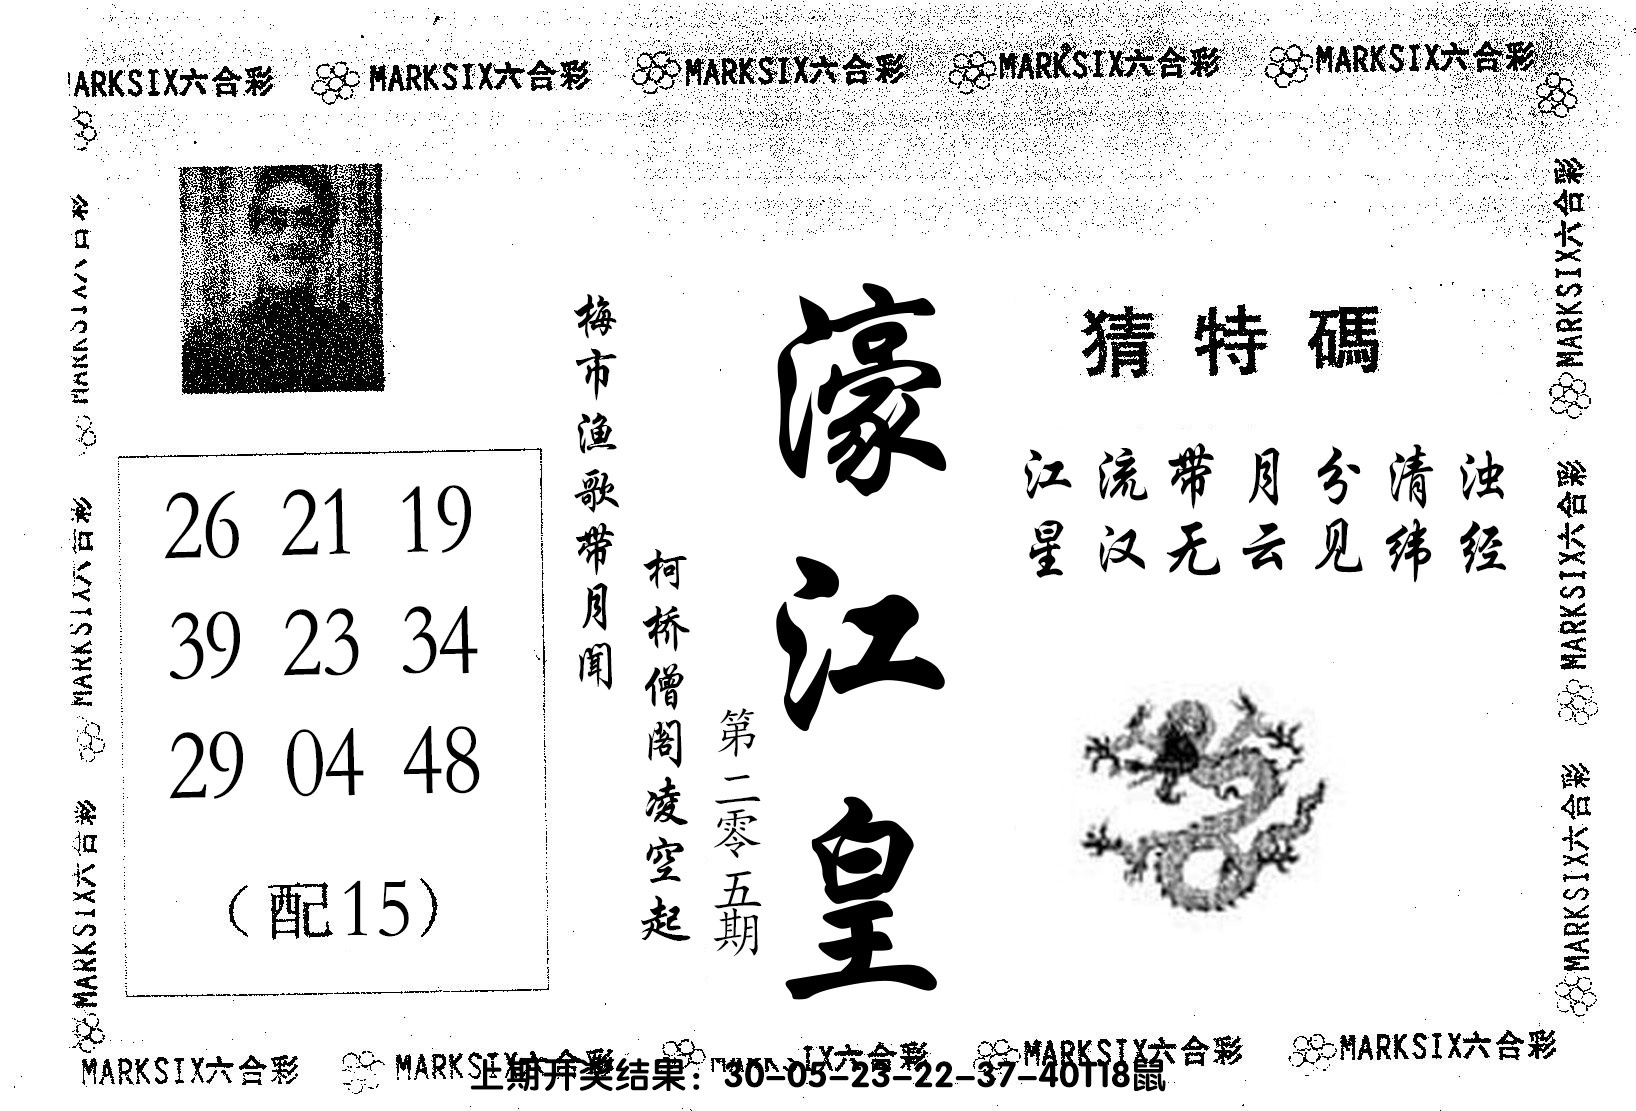 MARKSIX六合彩 MARKSIX六合彩 MARKSIX六合彩 MARKSIX六合彩 MARKSIX六合彩
MARKSIX六合彩
MARKSIX六合彩
MARKSIX六合彩
猜特碼
江流带月分清浊
星汉无云见纬经
濠江皇
第二零五期
柯桥僧阁凌空起
梅市渔歌带月闻
26 21 19
39 23 34
29 04 48
（配15）
MARKSIX六合彩
MARKSIX六合彩
MARKSIX六合彩
MARKSIX六合彩 MARKSIX六合彩 MARKSIX六合彩 MARKSIX六合彩 MARKSIX六合彩
上期开奖结果：30-05-23-22-37-40T18鼠